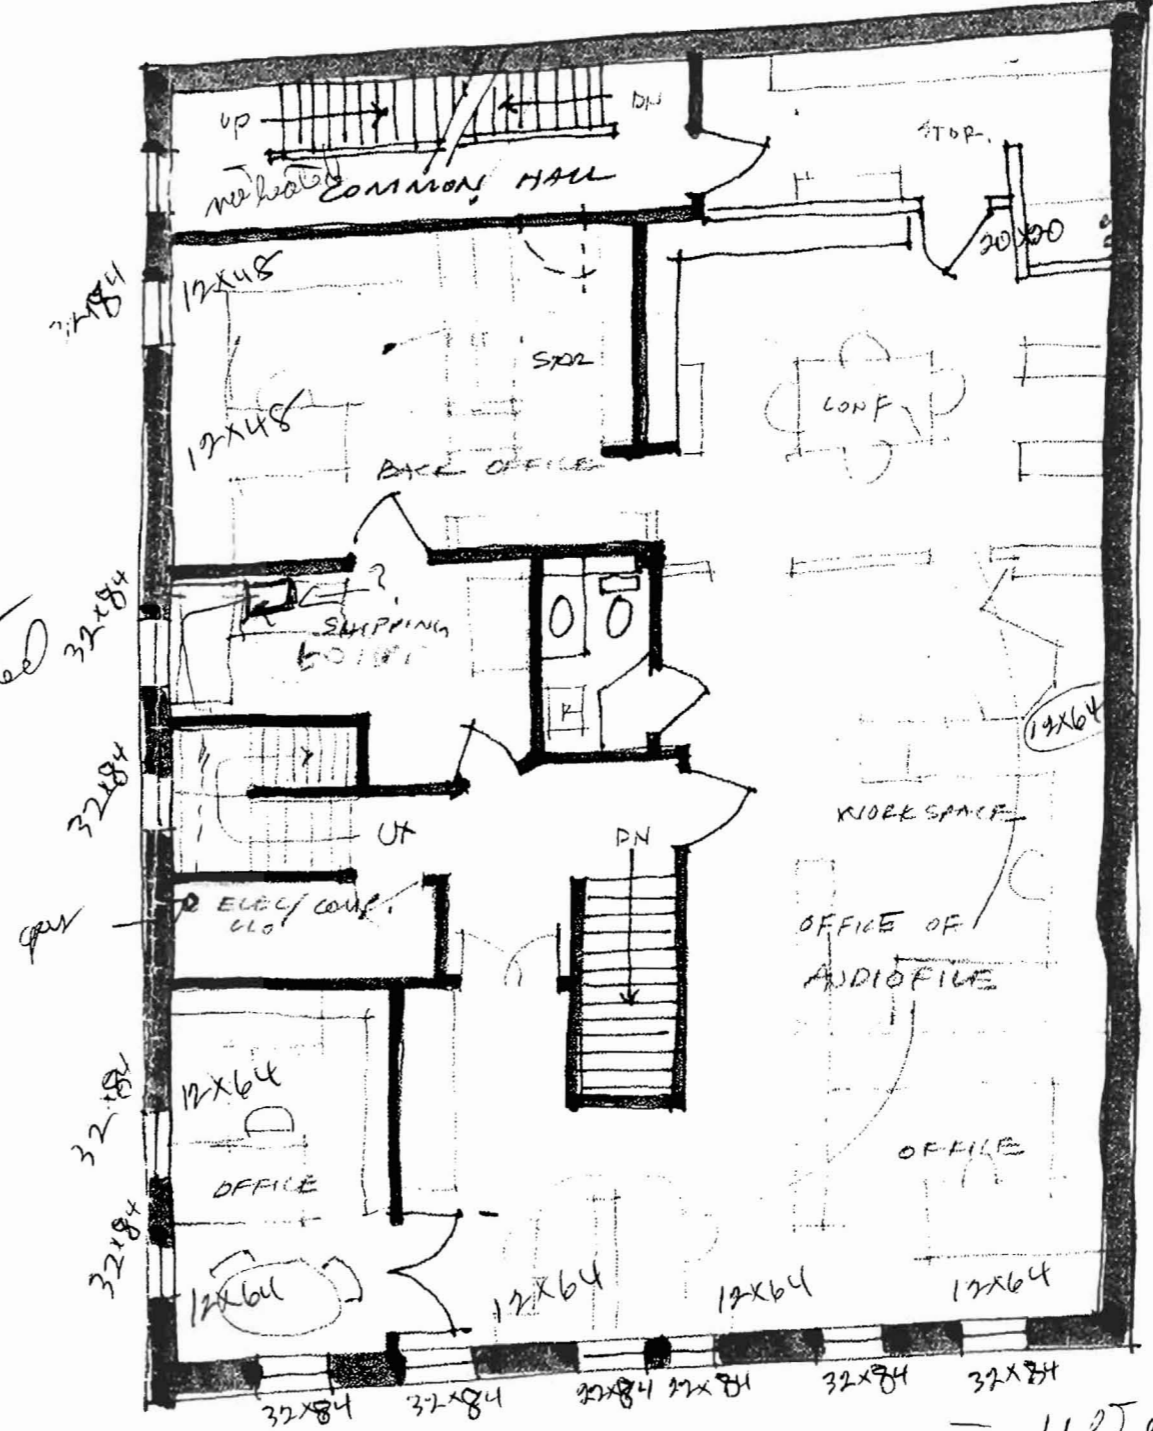 UP
DN
STOR.
not heated
COMMON HALL
20X20
12X48
32X84
STOR
CONF
12X48
BACK OFFICE
32X84
?
SHIPPING
12X64
32X84
UP
DN
WORKSPACE
ELEC/COMP.
CLO
OFFICE OF
AUDIOFILE
32X84
12X64
OFFICE
OFFICE
32X84
12X64
12X64
12X64
12X64
32X84
32X84
22X84
22X84
32X84
32X84